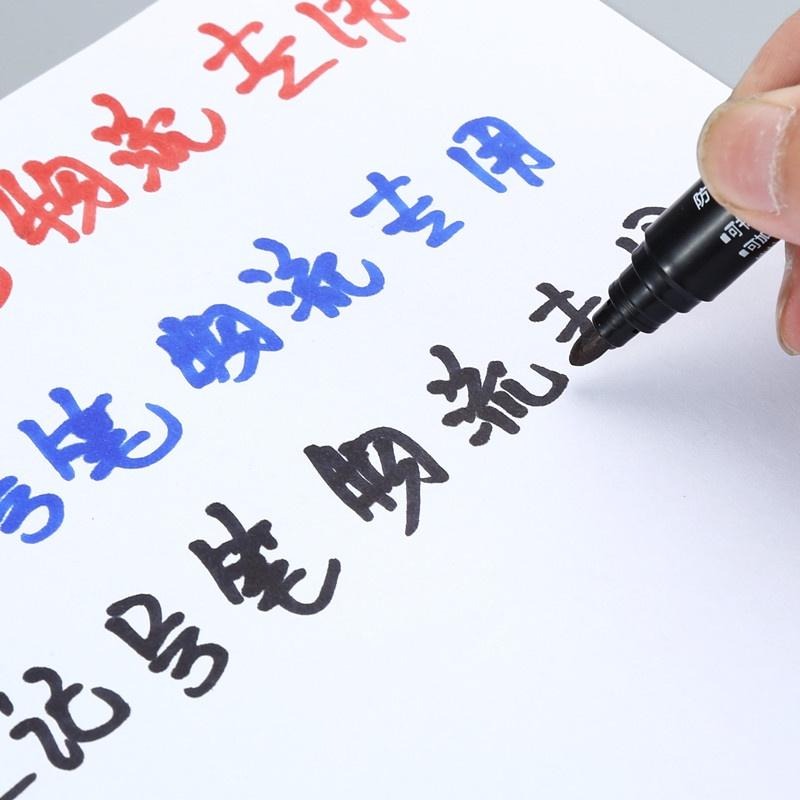 物流专用
号笔 物流专用
记号笔 物流专用
防
可书
可加